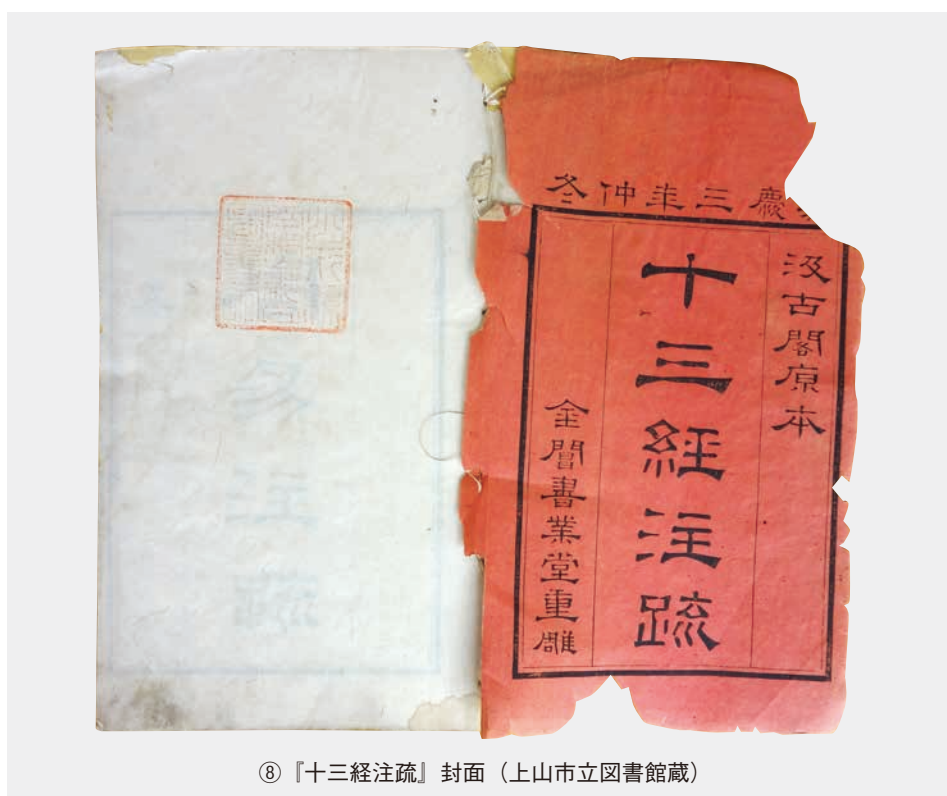 慶三年仲冬
汲古閣原本
十三經注疏
金閶書業堂重雕
⑧『十三経注疏』封面（上山市立図書館蔵）